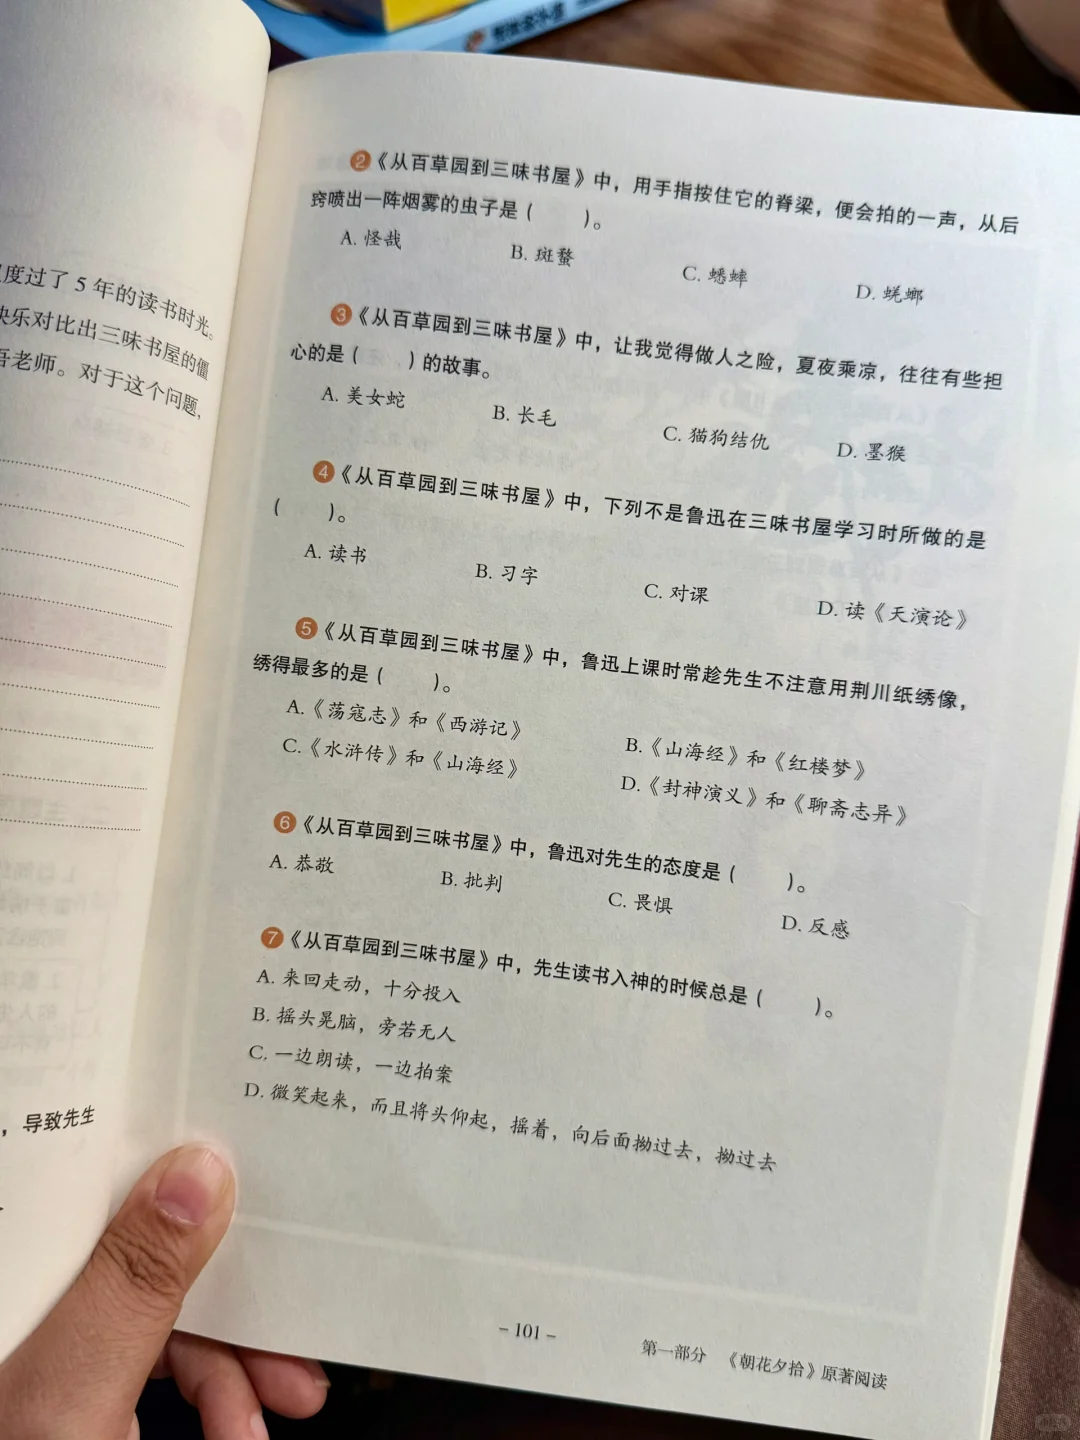 度过了 5 年的读书时光。
快乐对比出三味书屋的僵
吾老师。对于这个问题,
，导致先生
❷《从百草园到三味书屋》中，用手指按住它的脊梁，便会拍的一声，从后
窍喷出一阵烟雾的虫子是（　　）。
A. 怪哉 B. 斑蝥 C. 蟋蟀 D. 蜣螂
❸《从百草园到三味书屋》中，让我觉得做人之险，夏夜乘凉，往往有些担
心的是（　　）的故事。
A. 美女蛇 B. 长毛 C. 猫狗结仇 D. 墨猴
❹《从百草园到三味书屋》中，下列不是鲁迅在三味书屋学习时所做的是
（　　）。
A. 读书 B. 习字 C. 对课 D. 读《天演论》
❺《从百草园到三味书屋》中，鲁迅上课时常趁先生不注意用荆川纸绣像，
绣得最多的是（　　）。
A.《荡寇志》和《西游记》 B.《山海经》和《红楼梦》
C.《水浒传》和《山海经》 D.《封神演义》和《聊斋志异》
❻《从百草园到三味书屋》中，鲁迅对先生的态度是（　　）。
A. 恭敬 B. 批判 C. 畏惧 D. 反感
❼《从百草园到三味书屋》中，先生读书入神的时候总是（　　）。
A. 来回走动，十分投入
B. 摇头晃脑，旁若无人
C. 一边朗读，一边拍案
D. 微笑起来，而且将头仰起，摇着，向后面拗过去，拗过去
– 101 –
第一部分　《朝花夕拾》原著阅读